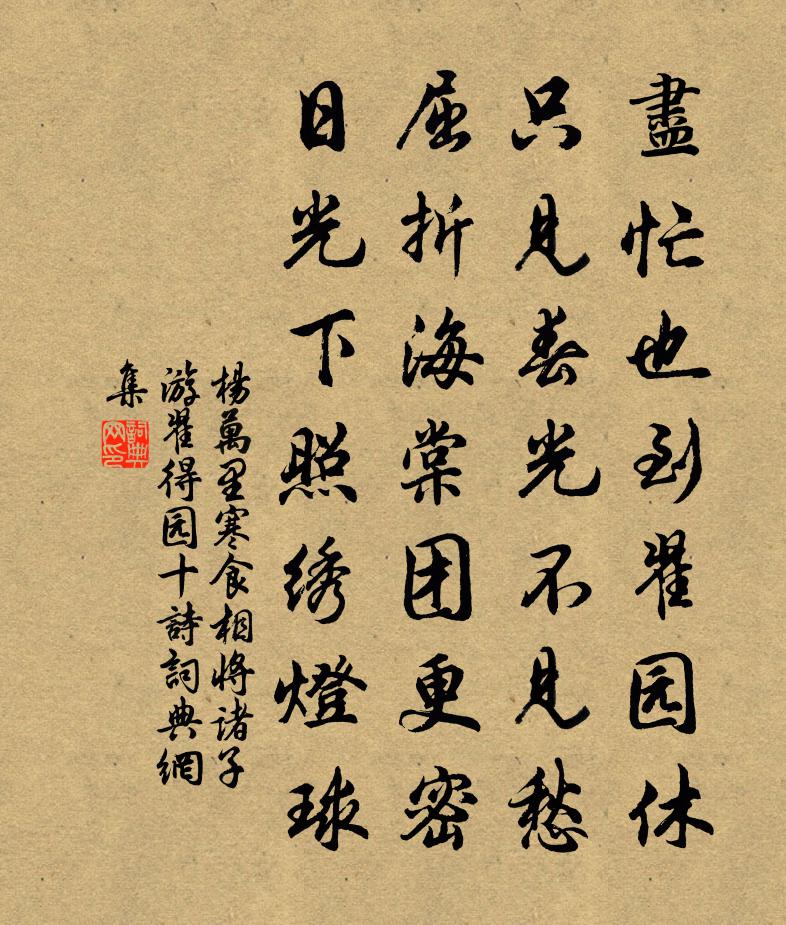 盡忙也到翟园休
只見春光不見愁
屈折海棠团更密
日光下照绣燈球
楊萬里寒食相将諸子
游翟得园十詩詞典網
集
詞典网印